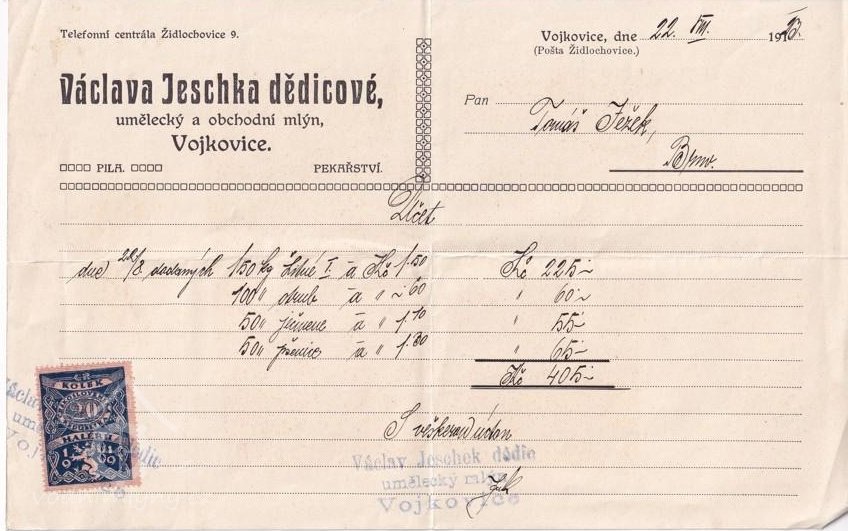 Telefonní centrála Židlochovice 9.
Václava Jeschka dědicové,
umělecký a obchodní mlýn,
Vojkovice.
PILA. PEKAŘSTVÍ.
Vojkovice, dne 22. VIII. 1923.
(Pošta Židlochovice.)
Pan
Tomáš Ježek,
Brno.
Účet
dne 22/8 dodaných 150 kg Žitné I. a Kč 1.50 Kč 225.-
100 " otrub a " -.60 " 60.-
50 " ječmene a " 1.10 " 55.-
50 " pšenice a " 1.30 " 65.-
Kč 405.-
S veškerou úctou
KOLEK
20
HALÉŘŮ
Václav Jeschek dědic
umělecký mlýn
Vojkovice